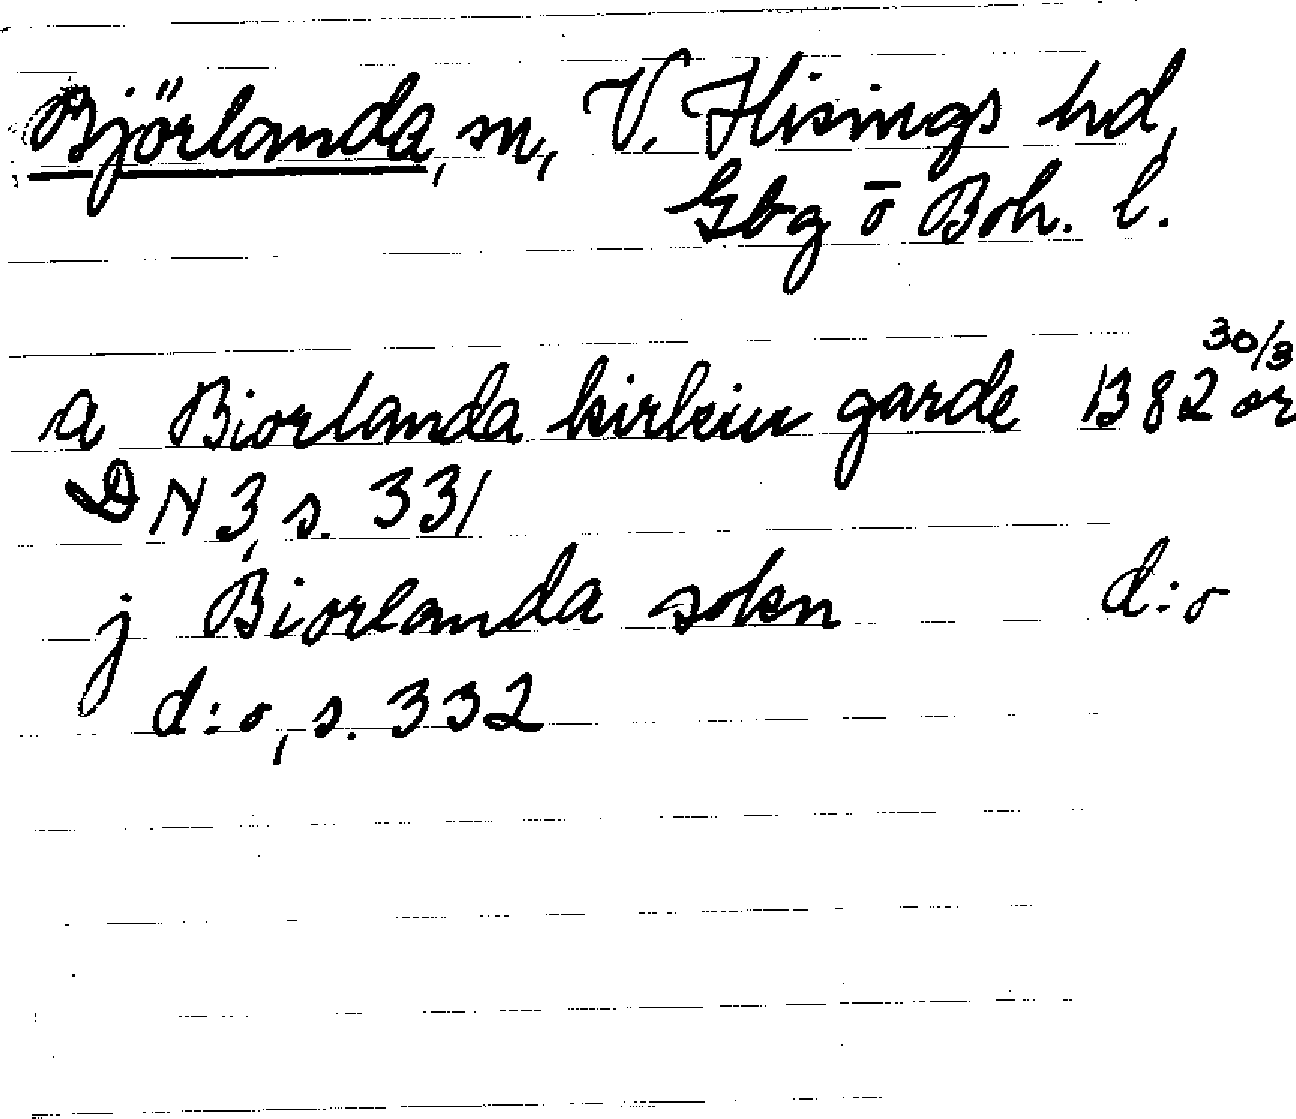 Björlanda, sn, V. Hisings hd,
Gbg ō Boh. l.
a Biorlanda kirkiu garde 1382 30/3 or
DN 3, s. 331
j Biorlanda sokn d:o
d:o, s. 332